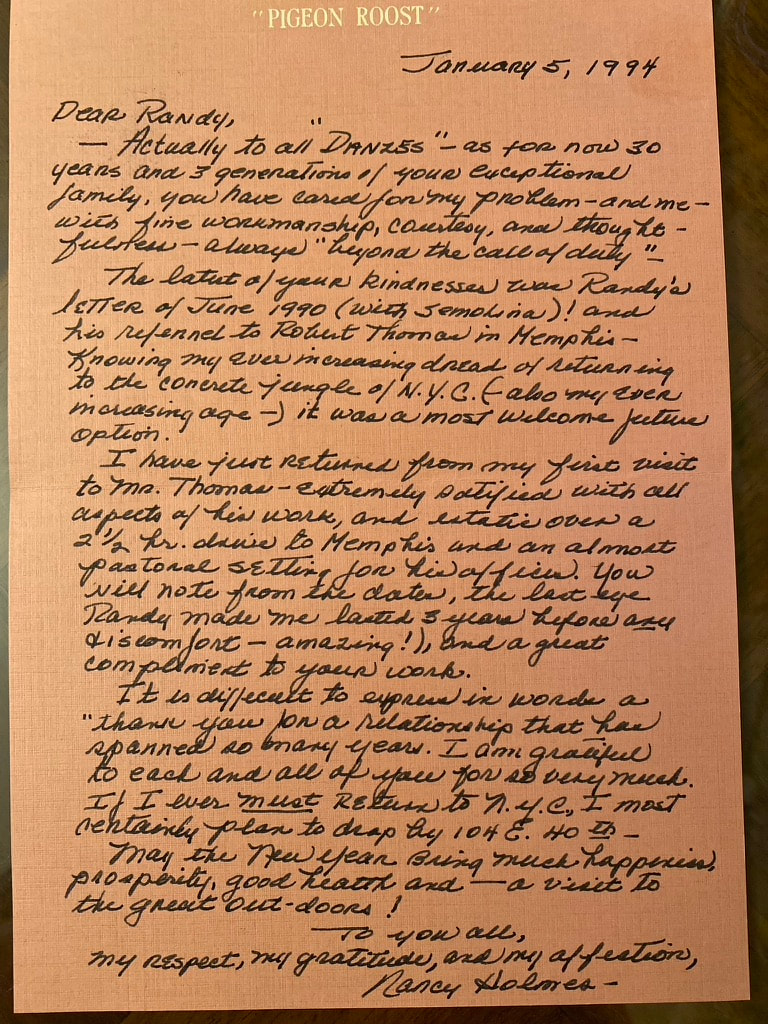 "PIGEON ROOST"
January 5, 1994
Dear Randy,
— Actually to all "DANZES" – as for now 30
years and 3 generations of your exceptional
family, you have cared for my problem – and me –
with fine workmanship, courtesy, and thought-
fulness – always "beyond the call of duty" –
The latest of your kindnesses was Randy's
letter of June 1990 (with Semolina)! and
his referred to Robert Thomas in Memphis –
Knowing my ever increasing dread of returning
to the concrete jungle of N.Y.C. (– also my ever
increasing age –) it was a most welcome future
option.
I have just returned from my first visit
to Mr. Thomas – extremely satified with all
aspects of his work, and estatic over a
2 1/2 hr. drive to Memphis and an almost
pastoral setting for his offices. You
will note from the dates, the last eye
Randy made me lasted 3 years before any
discomfort – amazing!), and a great
compliment to your work.
It is difficult to express in words a
"thank you for a relationship that has
spanned so many years. I am grateful
to each and all of you for so very much.
If I ever must return to N.Y.C., I most
certainly plan to drop by 104 E. 40th –
May the New Year Bring much happiness,
prosperity, good health and — a visit to
the great out-doors!
To you all,
my respect, my gratitude, and my affection,
Nancy Holmes –